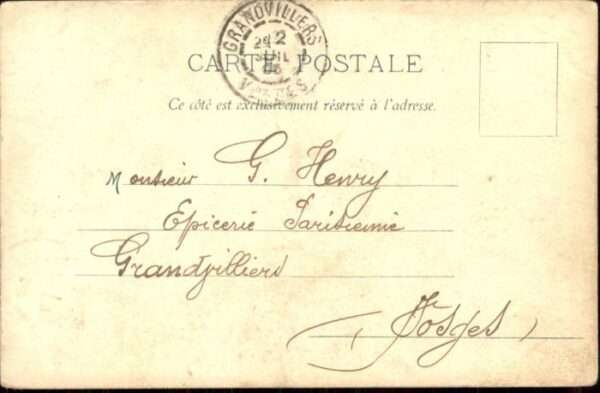 GRANDVILLERS
2
JUIL
VOSGES
CARTE POSTALE
Ce côté est exclusivement réservé à l'adresse.
Monsieur G. Henry
Epicerie Parisienne
Grandvilliers
(Vosges)